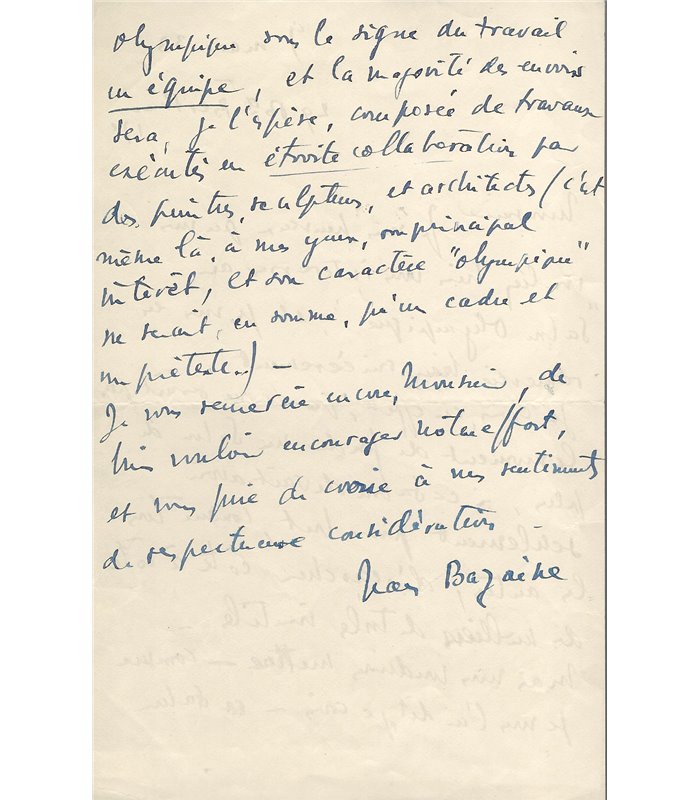 olympique sous le signe du travail
en équipe, et la majorité des envois
sera, je l'espère, composée de travaux
exécutés en étroite collaboration par
des peintres, sculpteurs, et architectes (c'est
même là, à mes yeux, son principal
intérêt, et son caractère "olympique"
ne serait, en somme, qu'un cadre et
un prétexte..) –
Je vous remercie encore, Monsieur, de
bien vouloir encourager notre effort,
et vous prie de croire à mes sentiments
de respectueuse considération
Jean Bazaine